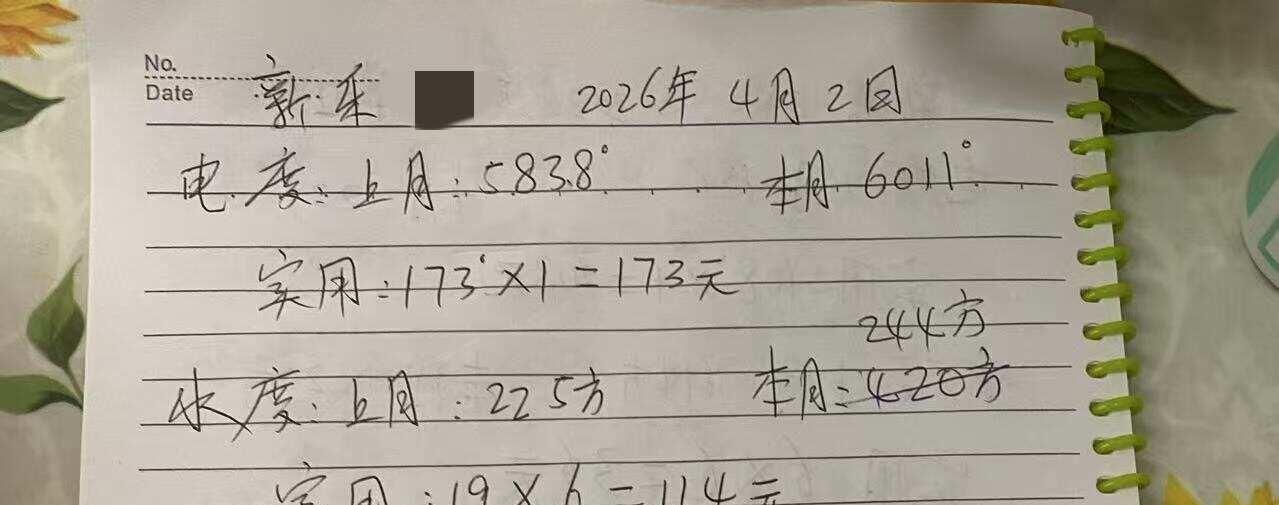 No.
Date 新来 2026年 4月 2日
电度：上月：5838° 本月 6011°
实用：173°×1=173元
244方
水度：上月：225方 本月：420方
实用：19×6=114元